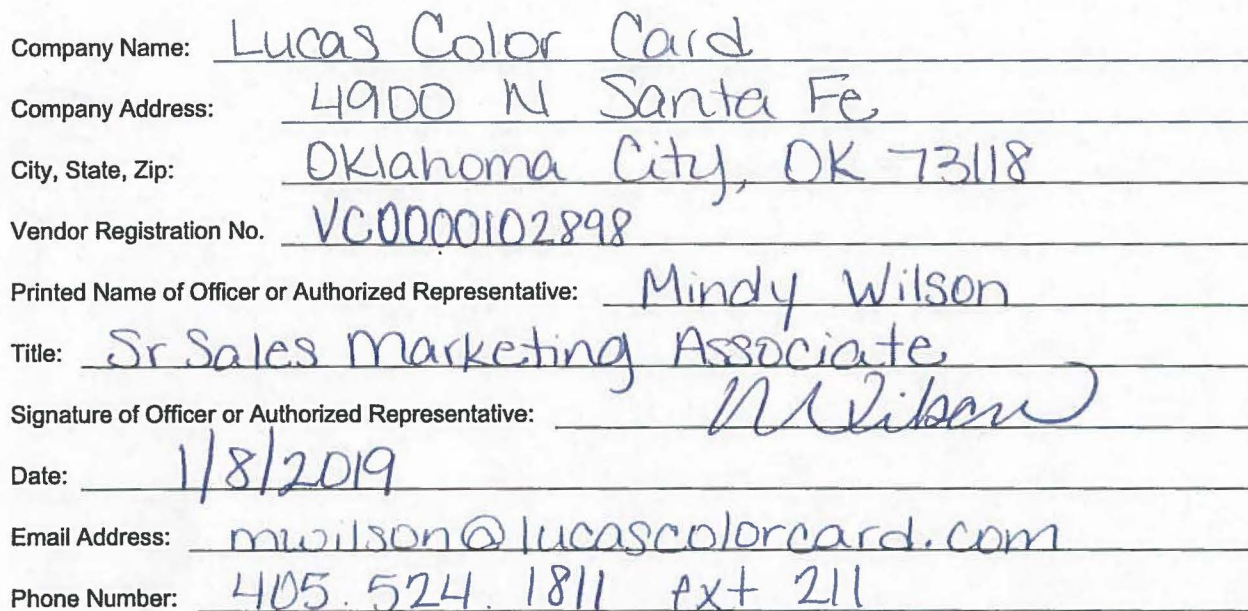 Company Name: Lucas Color Card
Company Address: 4900 N Santa Fe
City, State, Zip: Oklahoma City, OK 73118
Vendor Registration No. VC0000102898
Printed Name of Officer or Authorized Representative: Mindy Wilson
Title: Sr Sales Marketing Associate
Signature of Officer or Authorized Representative: MWilson
Date: 1/8/2019
Email Address: mwilson@lucascolorcard.com
Phone Number: 405.524.1811 ext 211